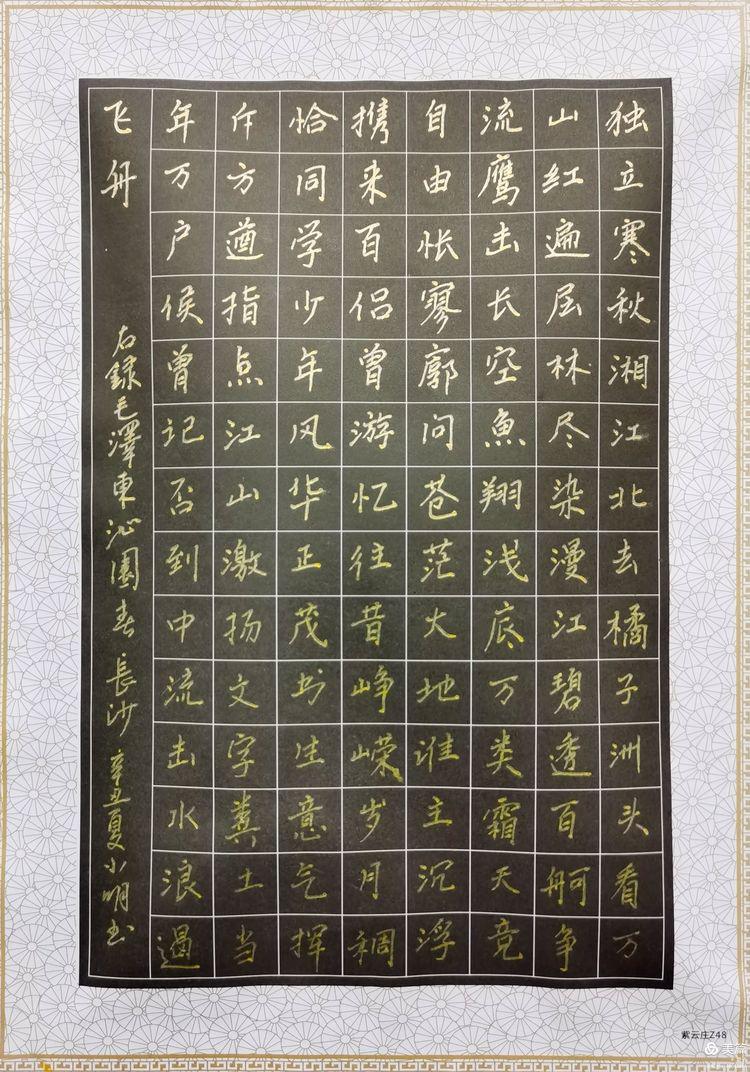 独立寒秋湘江北去橘子洲头看万
山红遍层林尽染漫江碧透百舸争
流鹰击长空魚翔浅底万类霜天竞
自由怅寥廓问苍茫大地谁主沉浮
携来百侣曾游忆往昔峥嵘岁月稠
恰同学少年风华正茂书生意气挥
斥方遒指点江山激扬文字粪土当
年万户侯曾记否到中流击水浪遏
飞舟
右録毛澤東沁園春長沙 辛丑夏小明书
紫云庄Z48
美篇